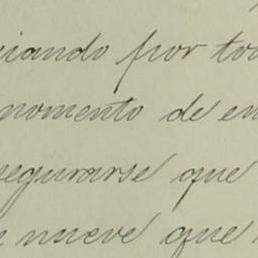 ciando por to
momento de en
segurarse que
nueve que